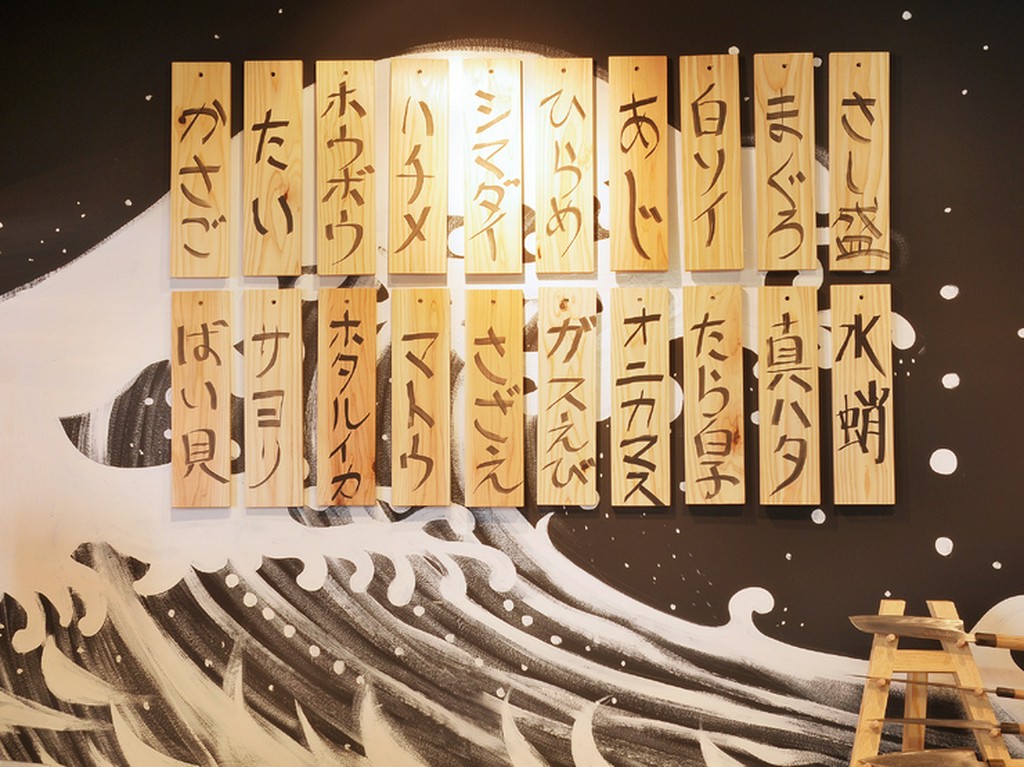 さし盛
まぐろ
白ソイ
あじ
ひらめ
シマダイ
ハチメ
ホウボウ
たい
かさご
水蛸
真ハタ
たら白子
オニカマス
ガスえび
さざえ
マトウ
ホタルイカ
サヨリ
ばい貝